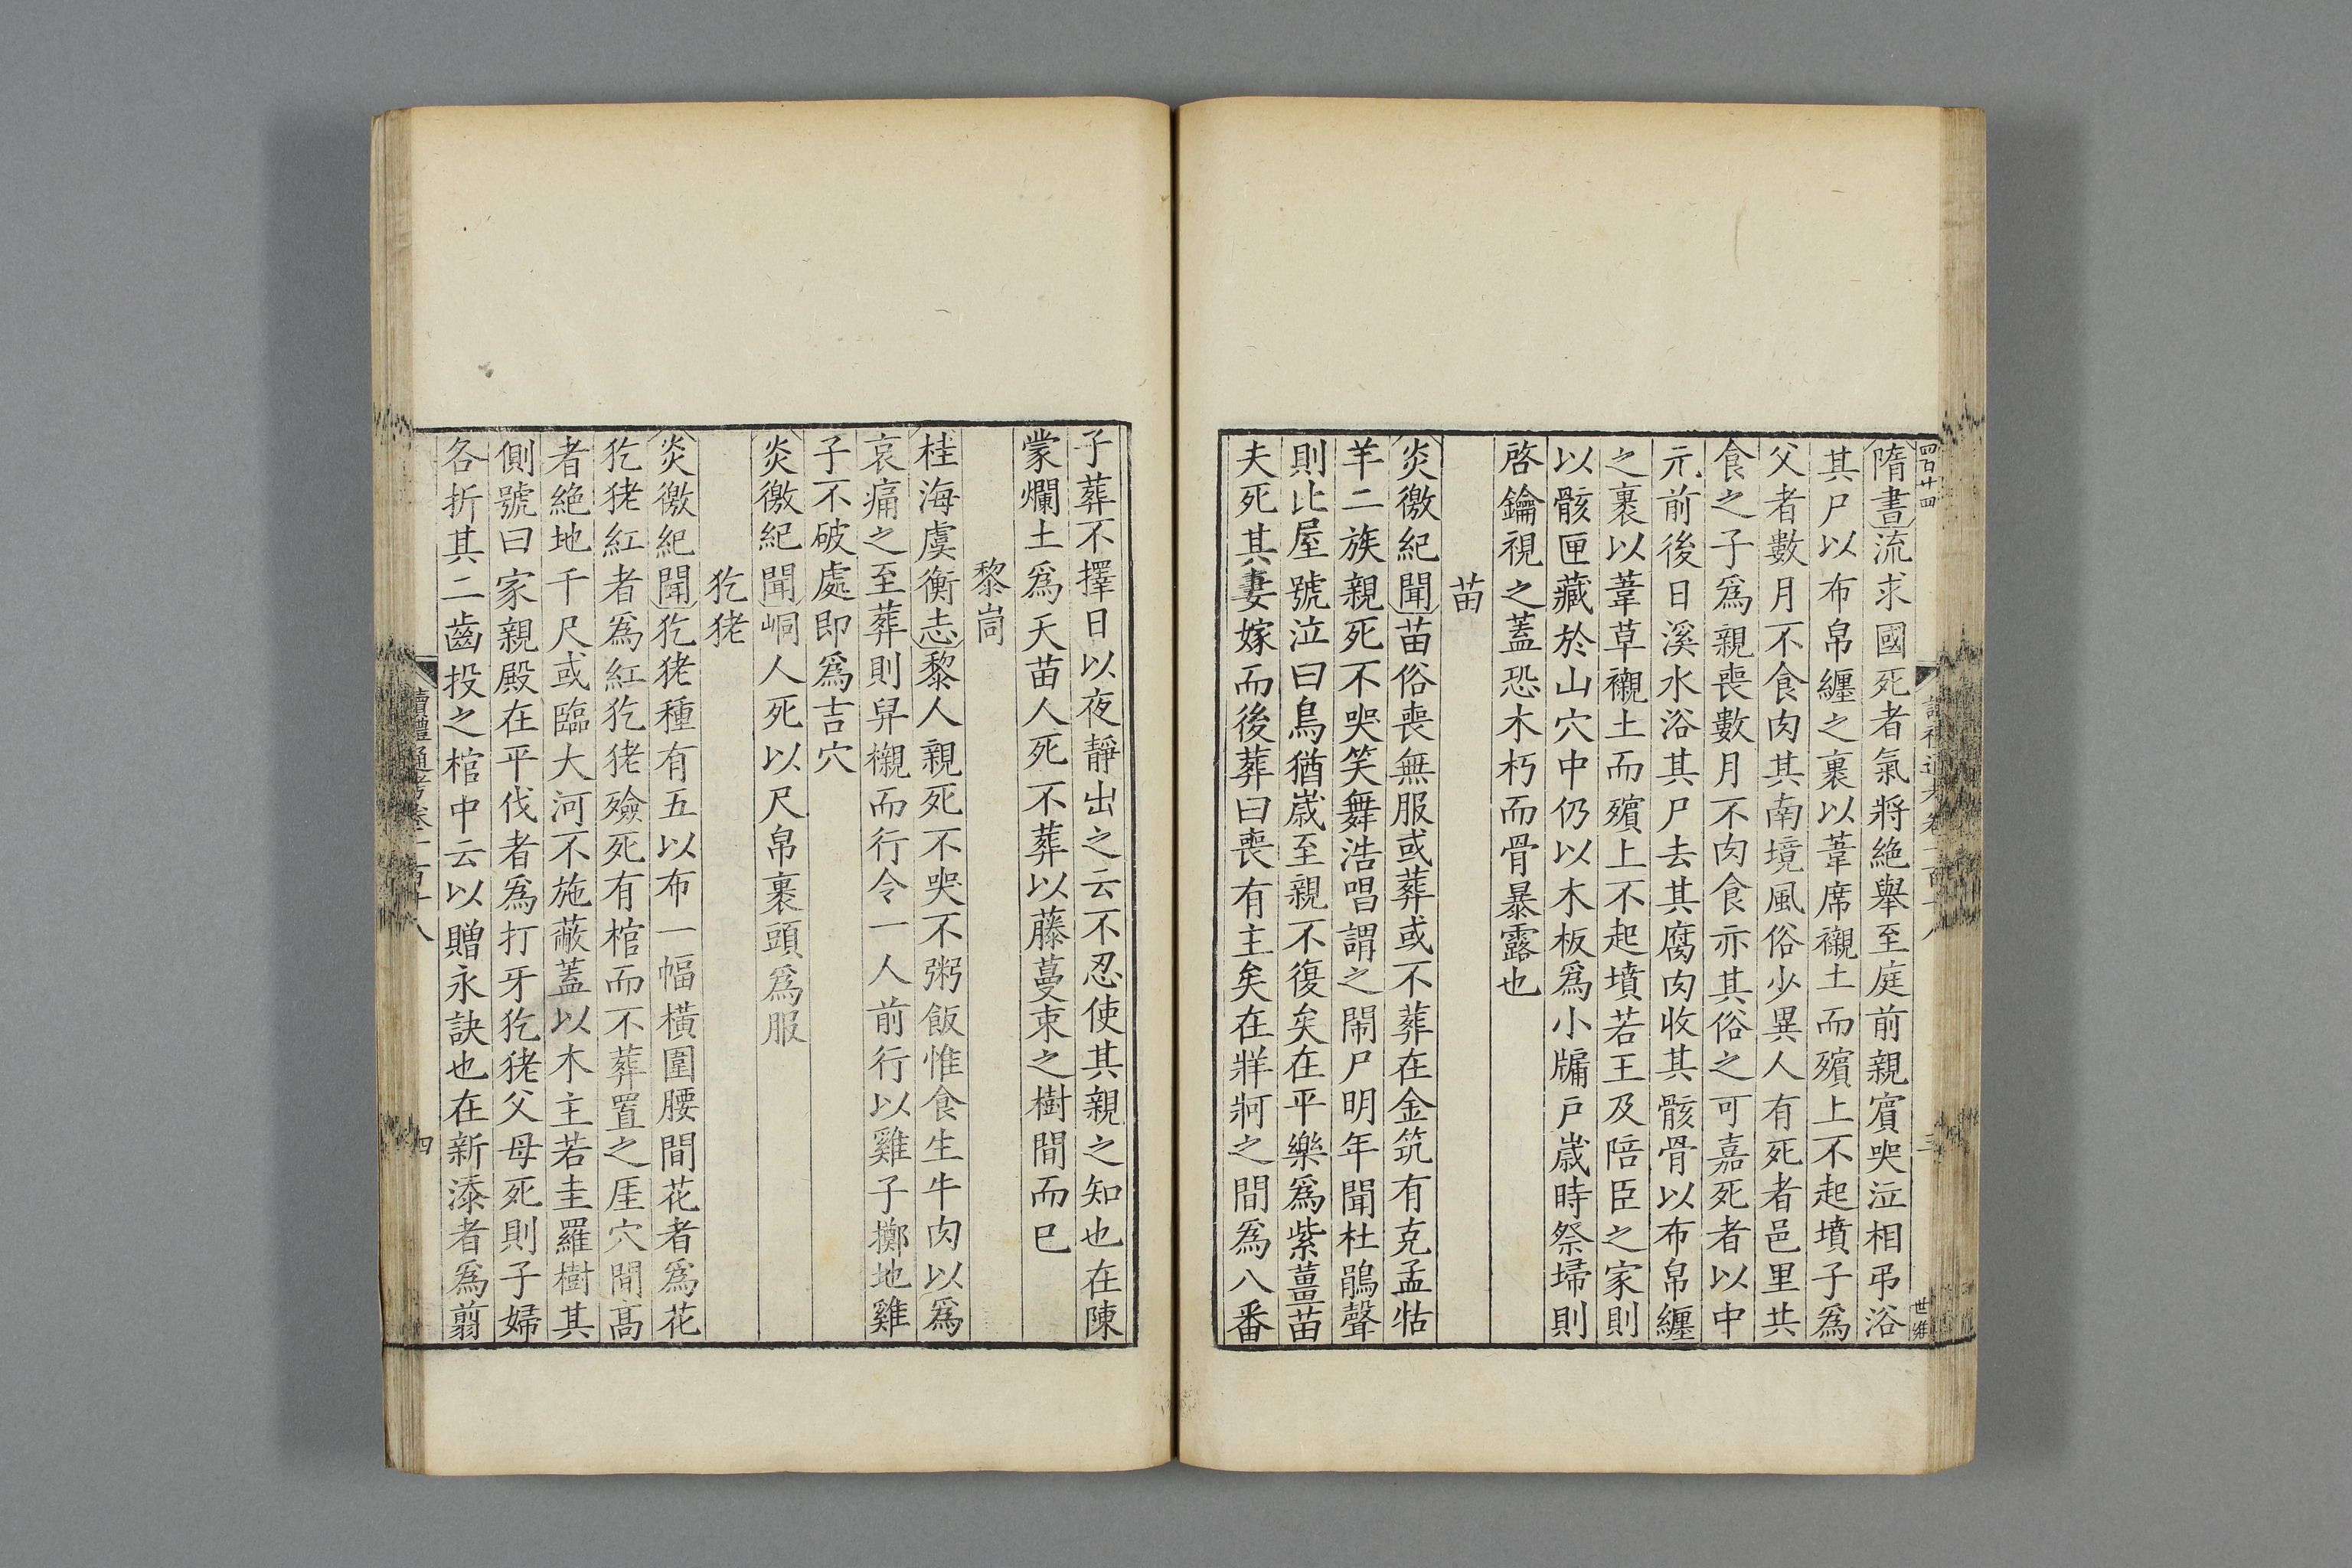 四百廿四
隋書流求國死者氣將絕舉至庭前親賓哭泣相弔浴
其尸以布帛纏之裹以葦席襯土而殯上不起墳子爲
父者數月不食肉其南境風俗少異人有死者邑里共
食之子爲親喪數月不肉食亦其俗之可嘉死者以中
元前後日溪水浴其尸去其腐肉收其骸骨以布帛纏
之裹以葦草襯土而殯上不起墳若王及陪臣之家則
以骸匣藏於山穴中仍以木板爲小牖戶歲時祭埽則
啓鑰視之蓋恐木朽而骨暴露也
苗
炎徼紀聞苗俗喪無服或葬或不葬在金筑有克孟牯
羊二族親死不哭笑舞浩唱謂之鬧尸明年聞杜鵑聲
則比屋號泣曰鳥猶歲至親不復矣在平樂爲紫薑苗
夫死其妻嫁而後葬曰喪有主矣在牂牁之間爲八番
子葬不擇日以夜靜出之云不忍使其親之知也在陳
蒙爛土爲天苗人死不葬以藤蔓束之樹間而巳
黎峝
桂海虞衡志黎人親死不哭不粥飯惟食生牛肉以爲
哀痛之至葬則舁櫬而行令一人前行以雞子擲地雞
子不破處即爲吉穴
炎徼紀聞峒人死以尺帛裹頭爲服
犵狫
炎徼紀聞犵狫種有五以布一幅橫圍腰間花者爲花
犵狫紅者爲紅犵狫殮死有棺而不葬置之厓穴間高
者絶地千尺或臨大河不施蔽蓋以木主若圭羅樹其
側號曰家親殿在平伐者爲打牙犵狫父母死則子婦
各折其二齒投之棺中云以贈永訣也在新添者爲翦
讀禮通考卷一百十八
四